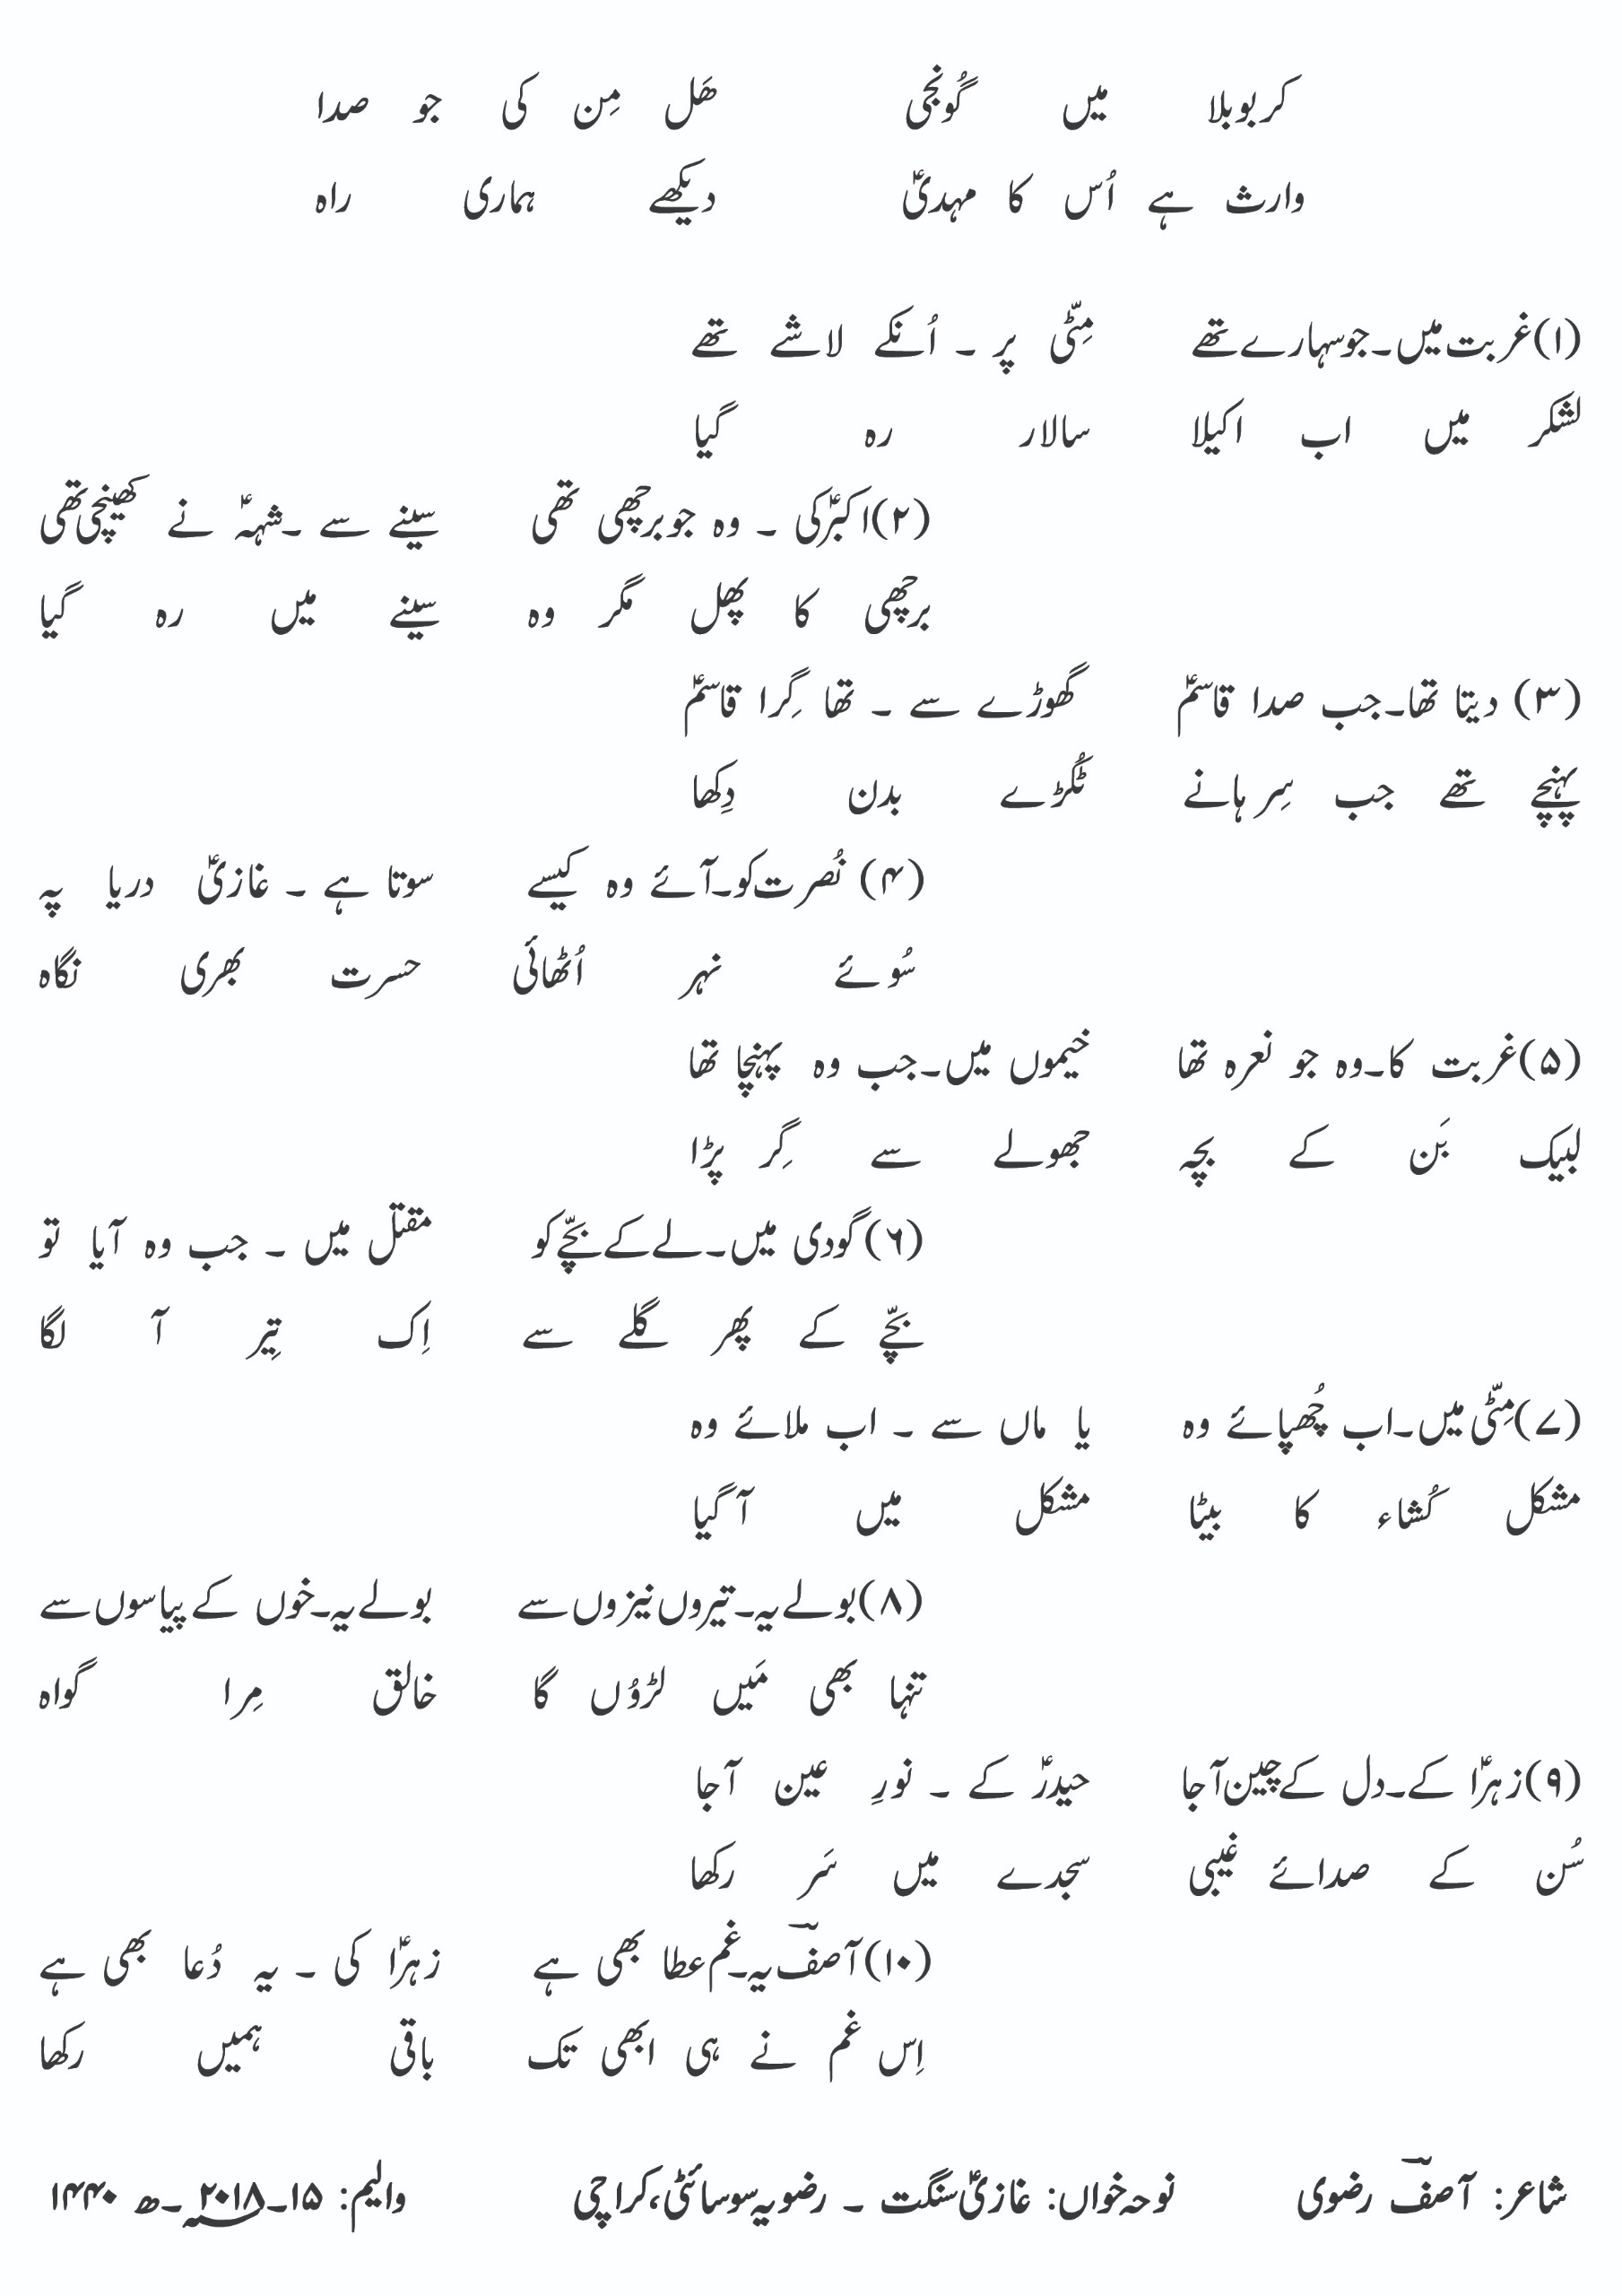 کربوبلا میں گُونجی ھَل مِن کی جو صدا
وارث ہے اُس کا مہدیؑ دیکھے ہماری راہ
(۱)غربت میں۔جوسہارے تھے مِٹّی پر ۔ اُنکے لاشے تھے
لشکر میں اب اکیلا سالار رہ گیا
(۲)اکبرؑکی ۔ وہ جوبرچھی تھی سینے سے ۔شہہؑ نے کھینچی تھی
برچھی کا پھل مگر وہ سینے میں رہ گیا
(۳) دیتا تھا۔جب صدا قاسمؑ گھوڑے سے ۔ تھا گِرا قاسمؑ
پہنچے تھے جب سِرہانے ٹُکڑے بدن دِکھا
(۴) نُصرت کو۔آئے وہ کیسے سوتا ہے ۔ غازیؑ دریا پہ
سُوئے نہر اُٹھائی حسرت بھری نگاہ
(۵)غربت کا۔وہ جو نعرہ تھا خیموں میں۔جب وہ پہنچا تھا
لبیک بَن کے بچہ جھولے سے گِر پڑا
(۶)گودی میں۔لے کے بچّے کو مقتل میں ۔ جب وہ آیا تو
بچّے کے پھر گلے سے اِک تِیر آ لگا
(۷)مِٹّی میں۔اب چُھپائے وہ یا ماں سے ۔ اب ملائے وہ
مشکل کُشاء کا بیٹا مشکل میں آگیا
(۸)بولے یہ۔تیروں نیزوں سے بولے یہ۔خوں کے پیاسوں سے
تنہا بھی مَیں لڑوُں گا خالق مِرا گواہ
(۹)زہرؑا کے۔دل کے چین آجا حیدرؑ کے ۔ نورِ عین آجا
سُن کے صدائے غیبی سجدے میں سَر رکھا
(۱۰)آصفؔ یہ۔غم عطا بھی ہے زہرؑا کی ۔ یہ دُعا بھی ہے
اِس غم نے ہی ابھی تک باقی ہمیں رکھا
شاعر: آصفؔ رضوی نوحہ خواں: غازیؑ سنگت ۔ رضویہ سوسائٹی، کراچی والیم: ۱۵۔۲۰۱۸؁۔ھ ۱۴۴۰